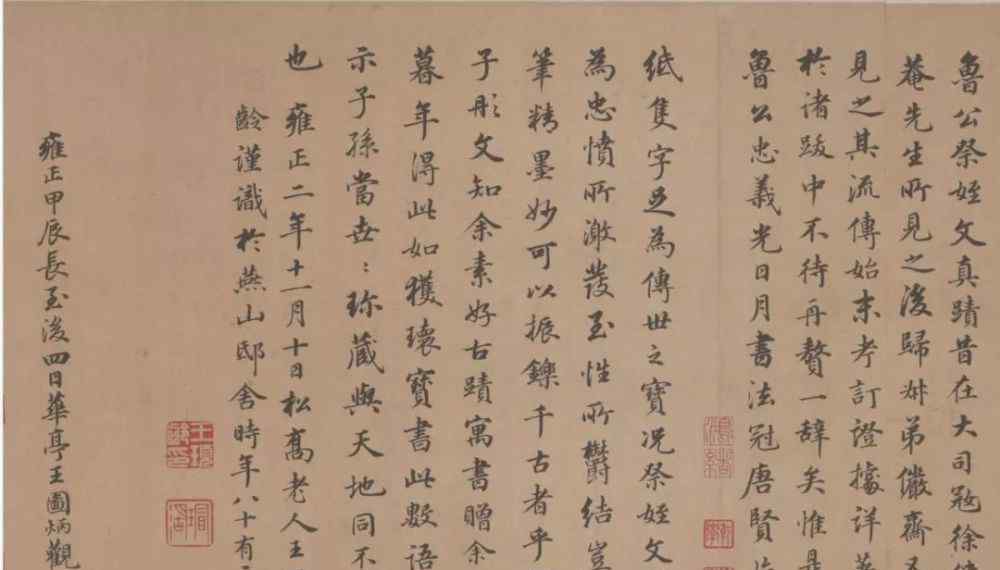 魯公祭姪文真蹟昔在大司寇徐
菴先生所見之後歸妹弟儼齋
見之其流傳始末考訂證據詳
於諸跋中不待再贅一辭矣惟是
魯公忠義光日月書法冠唐賢
紙隻字足為傳世之寶况祭姪文
為忠憤所激發至性所鬱結豈
筆精墨妙可以振鑠千古者乎
子彤文知余素好古蹟寓書贈余
暮年得此如獲瓌寶書此數語
示子孫當世〻珍藏與天地同不
也雍正二年十一月十日松髙老人王
齡謹識於燕山邸舍時年八十有
雍正甲辰長至後四日華亭王圖炳觀